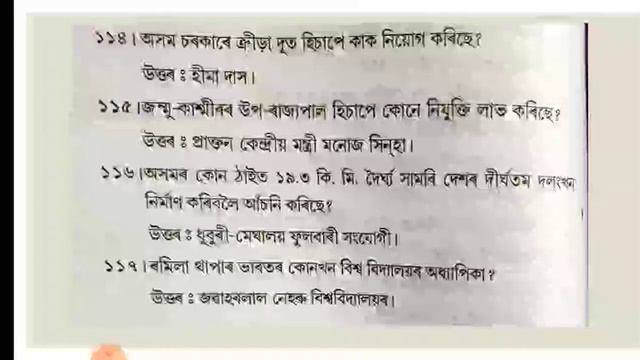 ১১৪। অসম চৰকাৰে ক্ৰীড়া দূত হিচাপে কাক নিয়োগ কৰিছে?
উত্তৰ : হীমা দাস।
১১৫। জম্মু-কাশ্মীৰৰ উপ-ৰাজ্যপাল হিচাপে কোনে নিযুক্তি লাভ কৰিছে?
উত্তৰ : প্ৰাক্তন কেন্দ্ৰীয় মন্ত্ৰী মনোজ সিন্হা।
১১৬। অসমৰ কোন ঠাইত ১৯.৩ কি. মি. দৈৰ্ঘ্য সামৰি দেশৰ দীৰ্ঘতম দলংখন
নিৰ্মাণ কৰিবলৈ আঁচনি কৰিছে?
উত্তৰ : ধুবুৰী-মেঘালয় ফুলবাৰী সংযোগী।
১১৭। ৰমিলা থাপাৰ ভাৰতৰ কোনখন বিশ্ব বিদ্যালয়ৰ অধ্যাপিকা?
উত্তৰ : জৱাহৰলাল নেহৰু বিশ্ববিদ্যালয়ৰ।